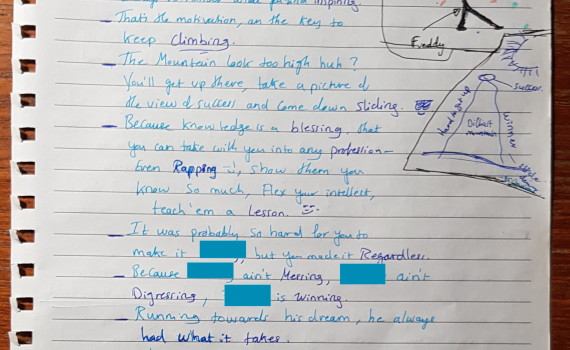 inspiring.
- That's the motivation, an the key to
keep climbing.
- The Mountain look too high huh?
You'll get up there, take a picture of
the view of success and come down sliding.
- Because knowledge is a blessing. that
you can take with you into any profession—
Even Rapping :), show them you
know so much, Flex your intellect,
teach 'em a Lesson.
- It was probably so hard for you to
make it , but you made it Regardless.
- Because ain't Messing, ain't
Digressing, is winning.
- Running towards his dream, he always
had what it takes.
Freddy
success
hard route up
Difficult
Mountain
winner